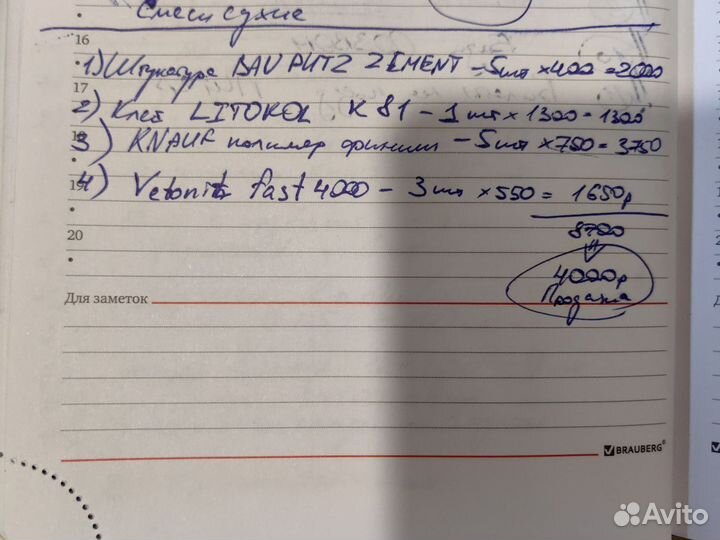 Смеси сухие
16
1) Штукатурка BAUPUTZ ZEMENT - 5шт x400 =2000
17
2) Клей LITOKOL K 81 - 1 шт x 1300 = 1300
18
3) KNAUF полимер финиш - 5шт x 750 = 3750
19
4) Vetonit fast 4000 - 3шт x550 = 1650р
8700
20
4000р
Продажа
Для заметок
BRAUBERG®
Avito